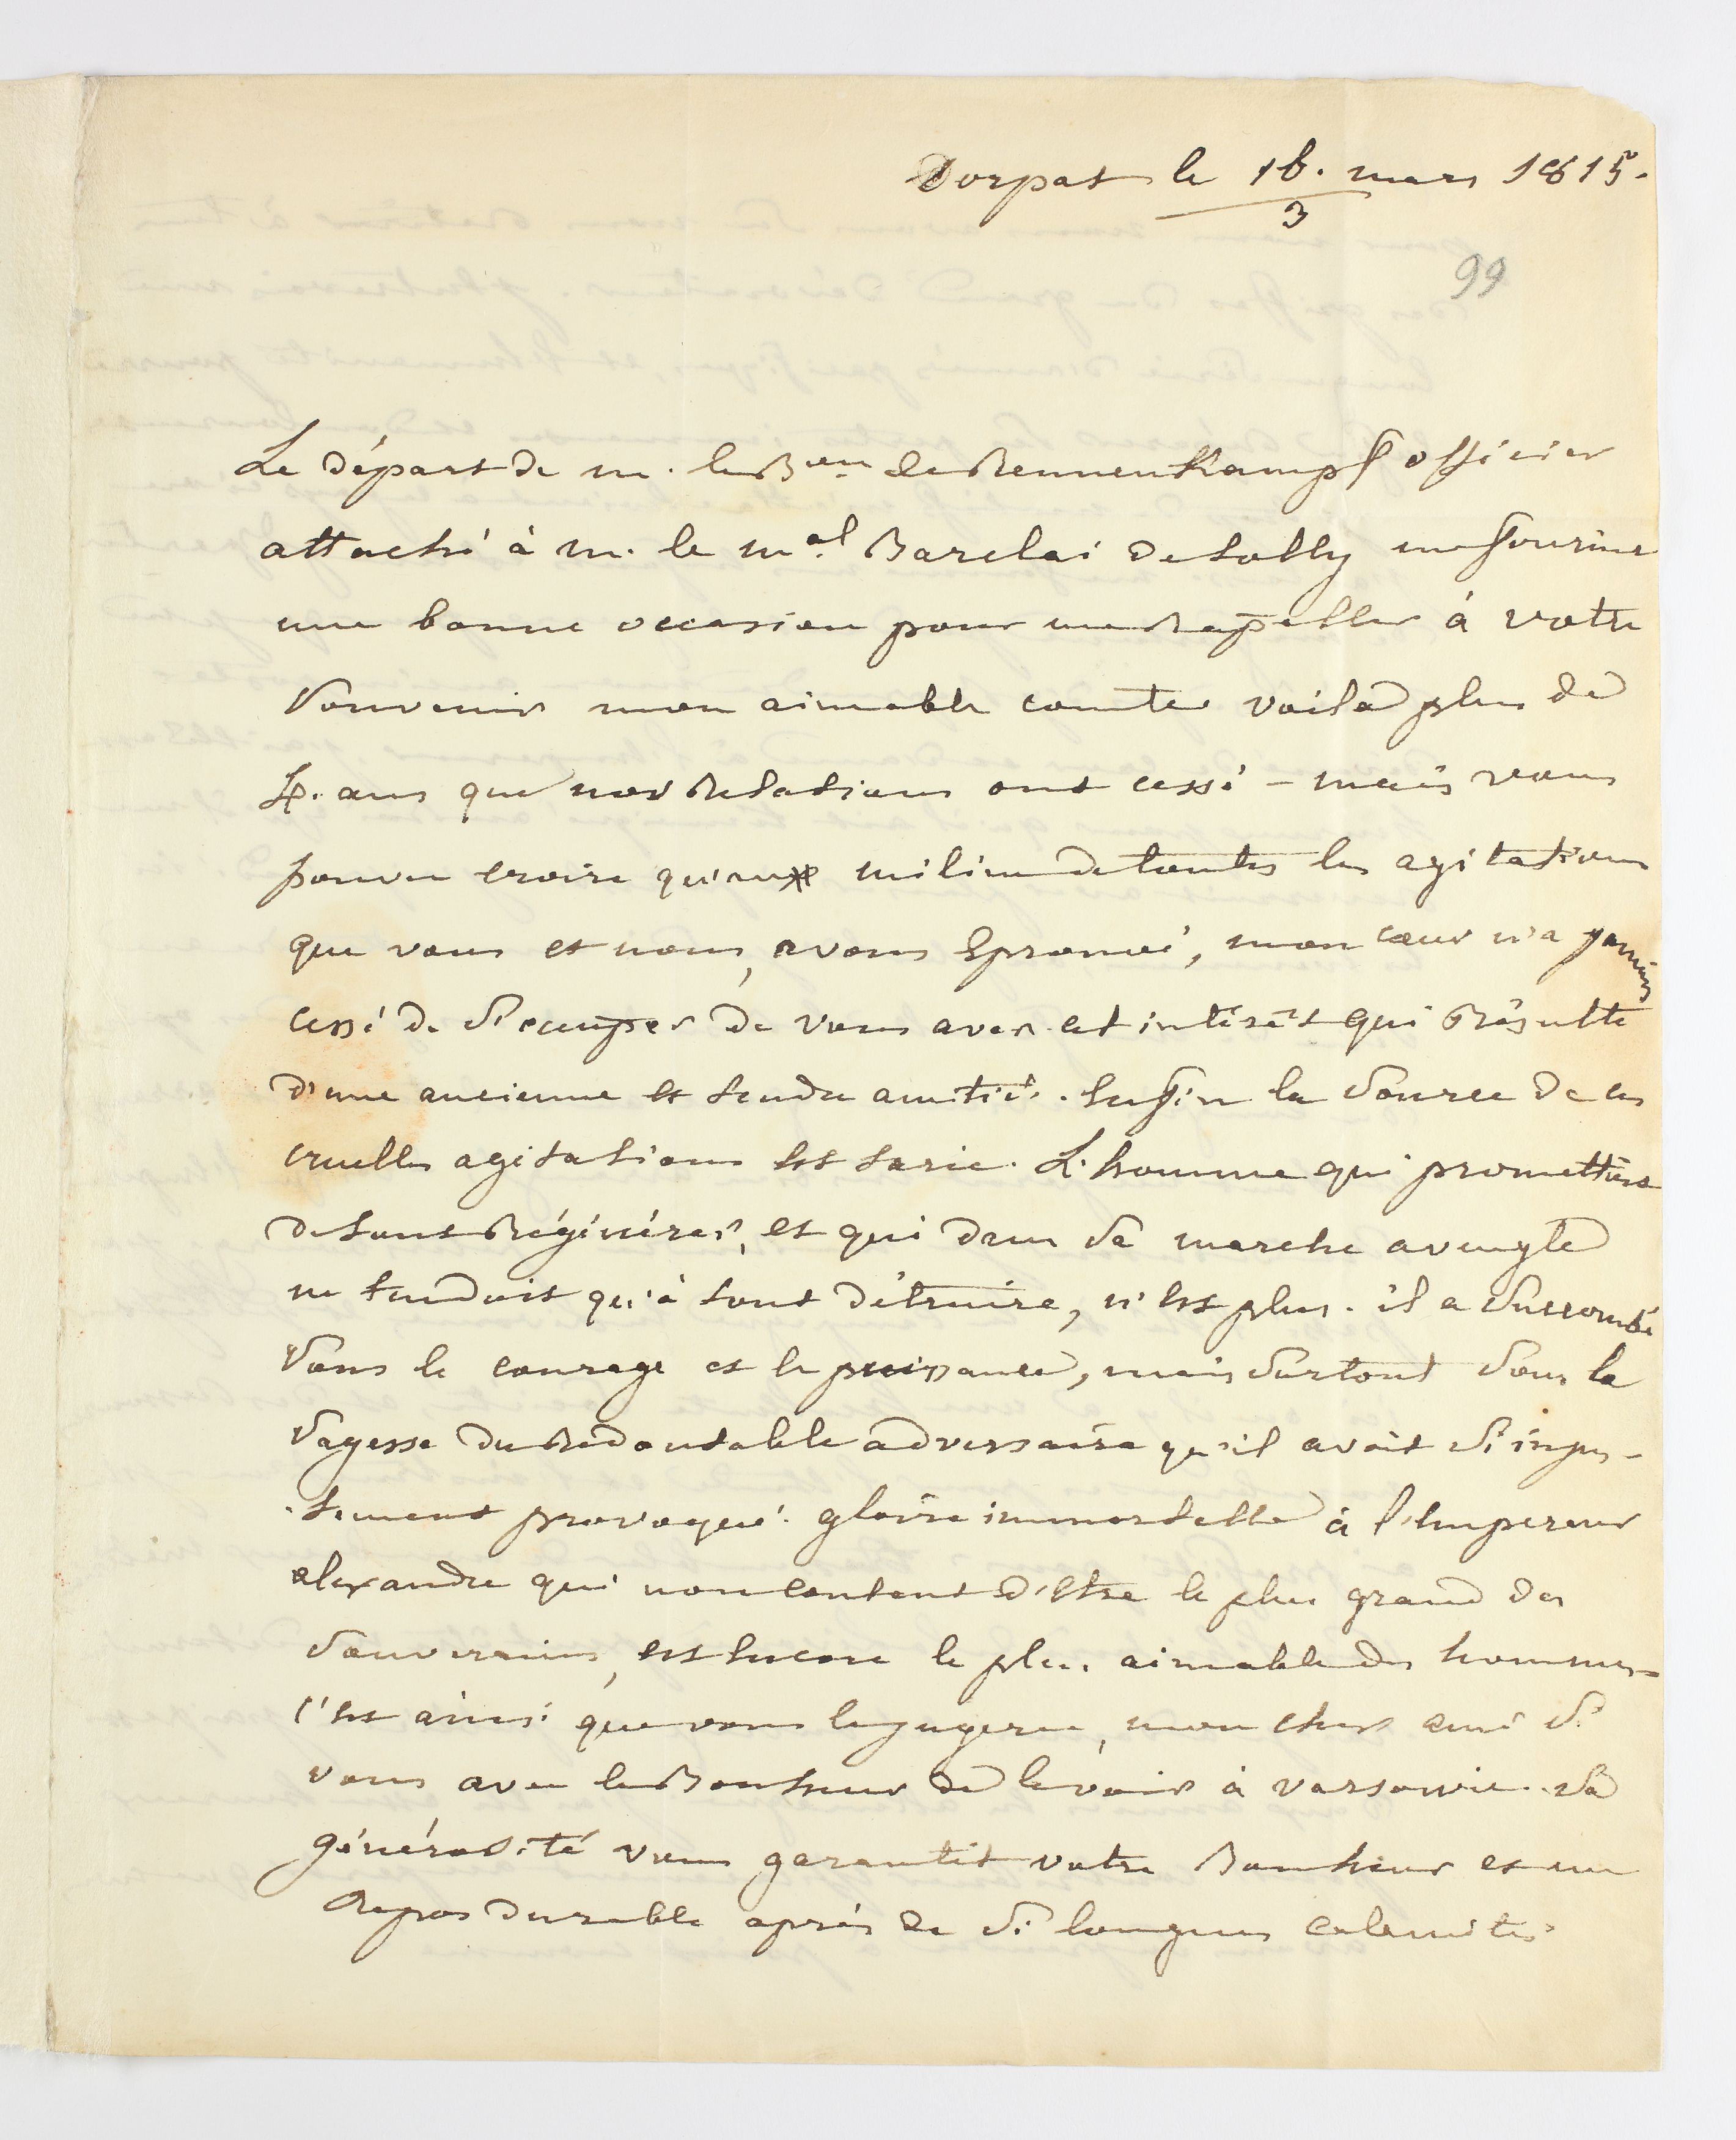 Dorpat le 16. mars 1815.
3
99
Le départ de m. le Bon. de Rennenkampff officier
attaché à m. le mal. Barclai de Tolly me fournit
une bonne occasion pour me rapeller à votre
souvenir mon aimable comte voilà plus de
4. ans que nos relations ont cessé – mais vous
pouvez croire qu'au milieu de toutes les agitations
que vous et nous, avons Eprouvé, mon cœur n'a jamais
cessé de s'ocuper de vous avec cet intérêt qui résulte
d'une ancienne et tendre amitié. Enfin la source de ces
cruelles agitations Est tarie. L'homme qui promettoit
de tout régénérer, et qui dans sa marche aveugle
ne tendoit qu'à tout détruire, n'Est plus. il a succombé
sous le courage et la puissance, mais surtout sous la
sagesse du redoutable adversaire qu'il avoit si injus-
-tement provoqué. gloire immortelle à l'Empereur
alexandre qui non content d'Etre le plus grand des
souverains, est Encore le plus aimable des hommes –
c'Est ainsi que vous le jugerez, mon cher ami si
vous avez le Bonheur de le voir à varsovie. sa
générosité vous garantit votre Bonheur et un
repos durable après de si longues calamités.